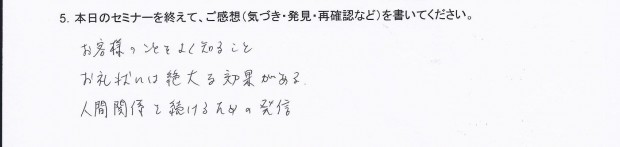 5. 本日のセミナーを終えて、ご感想（気づき・発見・再確認など）を書いてください。
お客様のことをよく知ること
お礼状には絶大る効果がある.
人間関係を続けるための発信